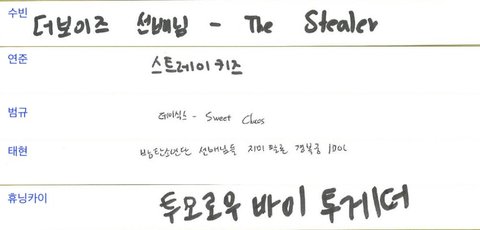 수빈
더보이즈 선배님 - The Stealer
연준
스트레이 키즈
범규
데이식스 - Sweet Chaos
태현
방탄소년단 선배님들 지미 팰론 경복궁 IDOL
휴닝카이
투모로우 바이 투게더